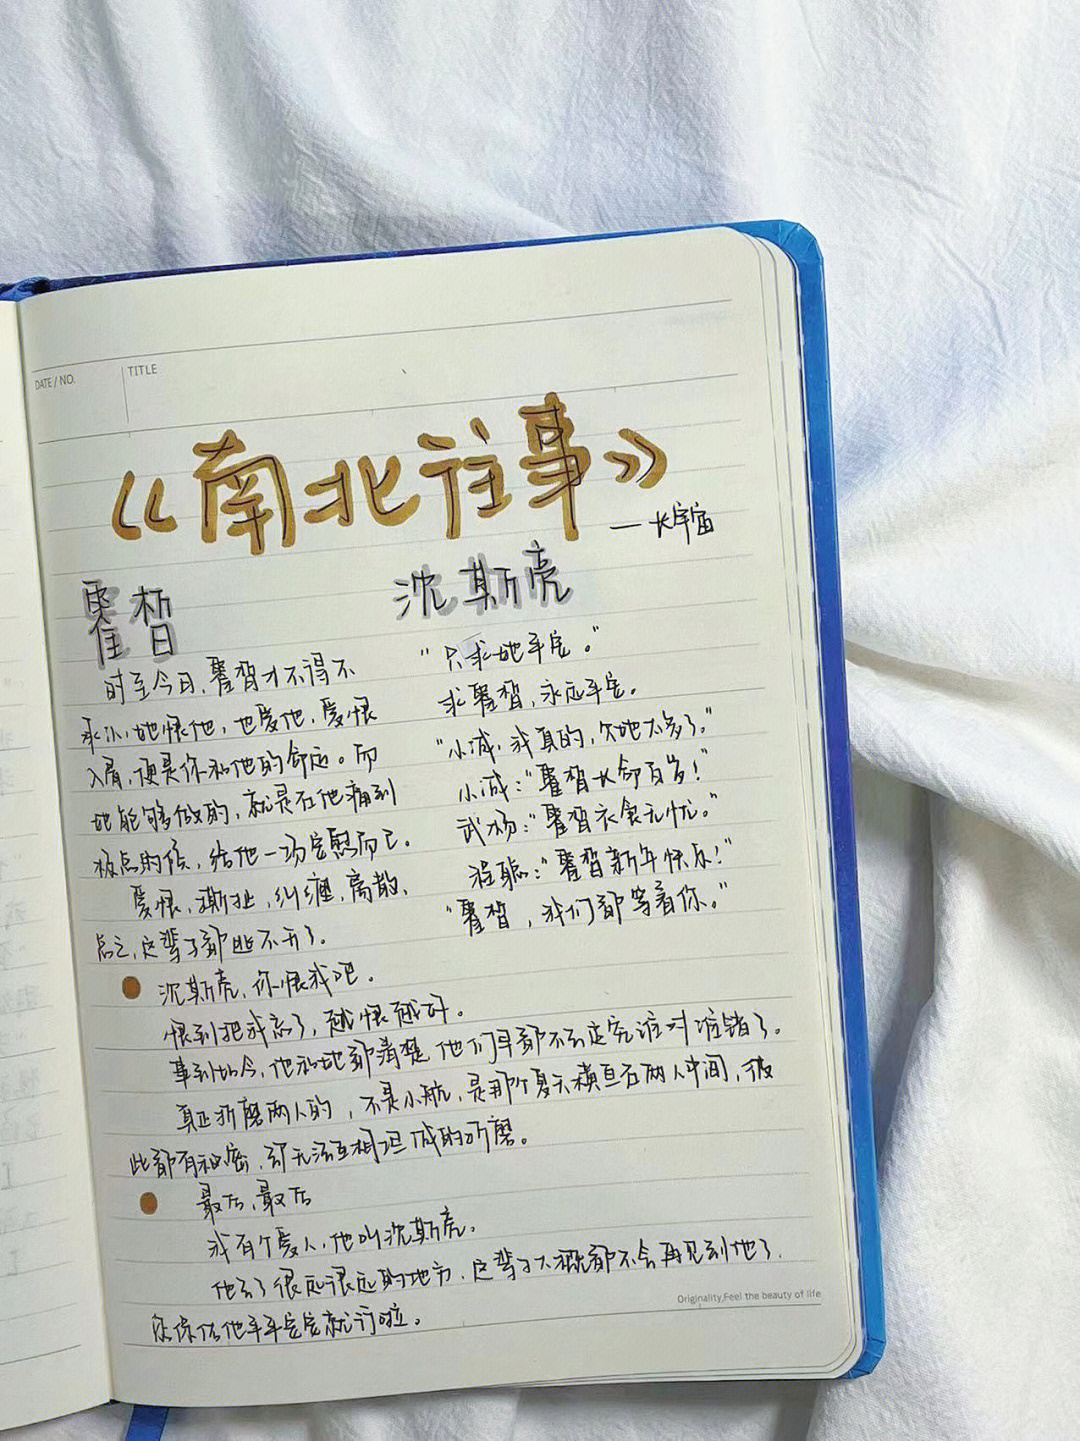 DATE / NO.
TITLE
《南北往事》
——长宇宙
霍皙
沈斯亮
时至今日,霍皙才不得不
承认,她恨他,也爱他,爱恨
入骨,便是你和他的命运。而
她能够做的,就是在他痛到
极点的时候,给他一场安慰而已。
爱恨,撕扯,纠缠,离散,
总之,这辈子都逃不开了。
"只求她平安。"
求霍皙,永远平安。
"小诚,我真的,欠她太多了。"
小诚:"霍皙长命百岁!"
武杨:"霍皙衣食无忧。"
"霍皙新年快乐!"
"霍皙,我们都等着你。"
沈斯亮,你恨我吧。
恨到把我忘了,越恨越好。
事到如今,他和她都清楚,他们早都不去追究谁对谁错了。
真正折磨两人的,不是小航,是那个夏天横亘在两人中间,彼
此都有秘密,却无法互相坦诚的折磨。
最后,最后
我有个爱人,他叫沈斯亮。
他去了很远很远的地方,这辈子大概都不会再见到他了,
您保佑他平平安安就行啦。
Originality,Feel the beauty of life